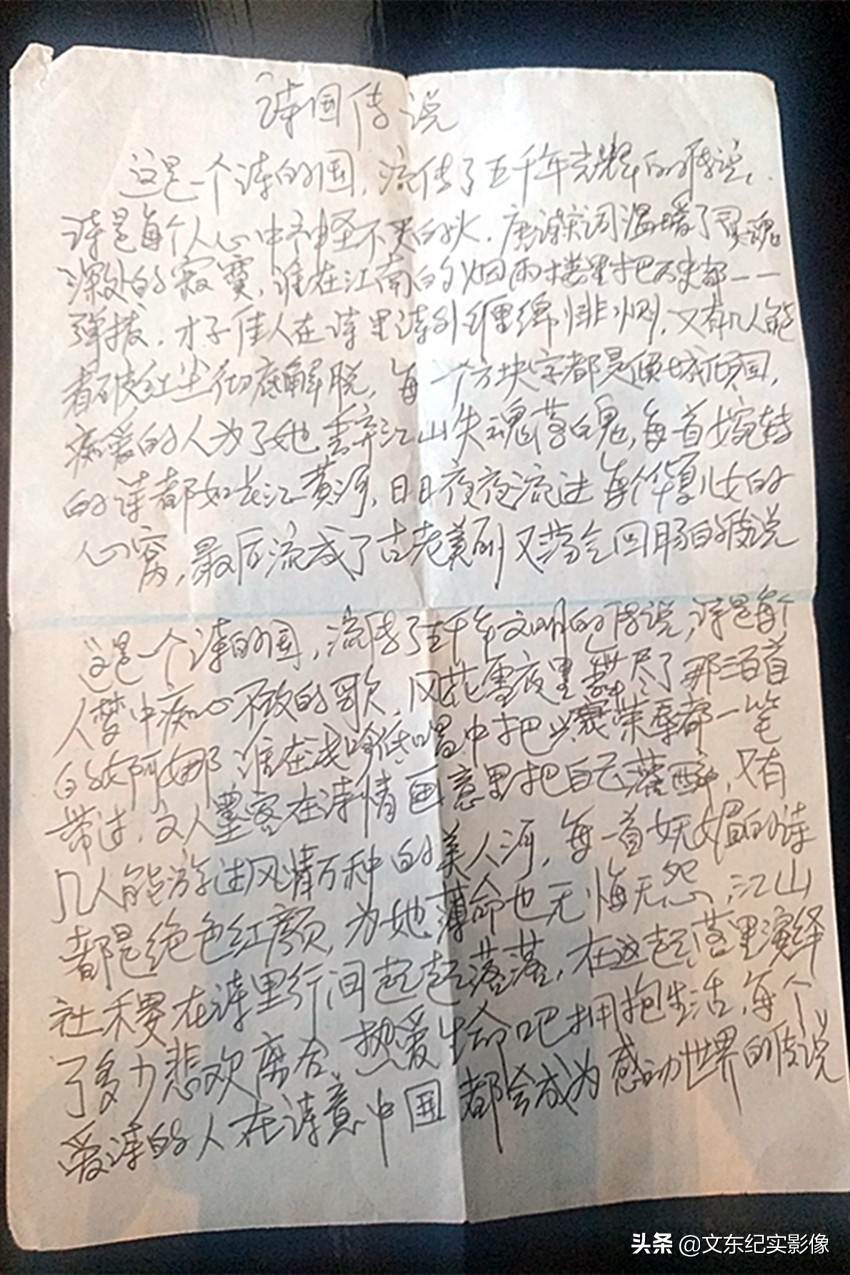 诗国传说
这是一个诗的国,流传了五千年光辉的传说,
诗是每个人心中神圣不灭的火.唐诗宋词温暖了灵魂
深处的寂寞,谁在江南的烟雨楼里把历史都一一
弹拨,才子佳人在诗里诗外缠绵悱恻,又有几人能
看破红尘彻底解脱,每一个方块字都是倾城倾国,
痴爱的人为了她丢弃江山失魂落魄,每首婉转
的诗都如长江黄河,日日夜夜流进每个华夏儿女的
心窝,最后流成了古老美丽又荡气回肠的传说
这是一个诗的国,流传了五千年文明的传说,诗是每个
人梦中痴心不改的歌,风花雪夜里 尽了那三百首
的婀娜,谁在浅吟低唱中把 荣辱都一笔
带过,文人墨客在诗情画意里把自己灌醉,又有
几人能游进风情万种的美人河,每一首妩媚的诗
都是绝色红颜,为她薄命也无悔无怨,江山
社稷在诗里行间起起落落,在这起落里演绎
了多少悲欢离合,热爱生命吧拥抱生活,每个
爱诗的人在诗意中国都会成为感动世界的传说
头条 @文东纪实影像